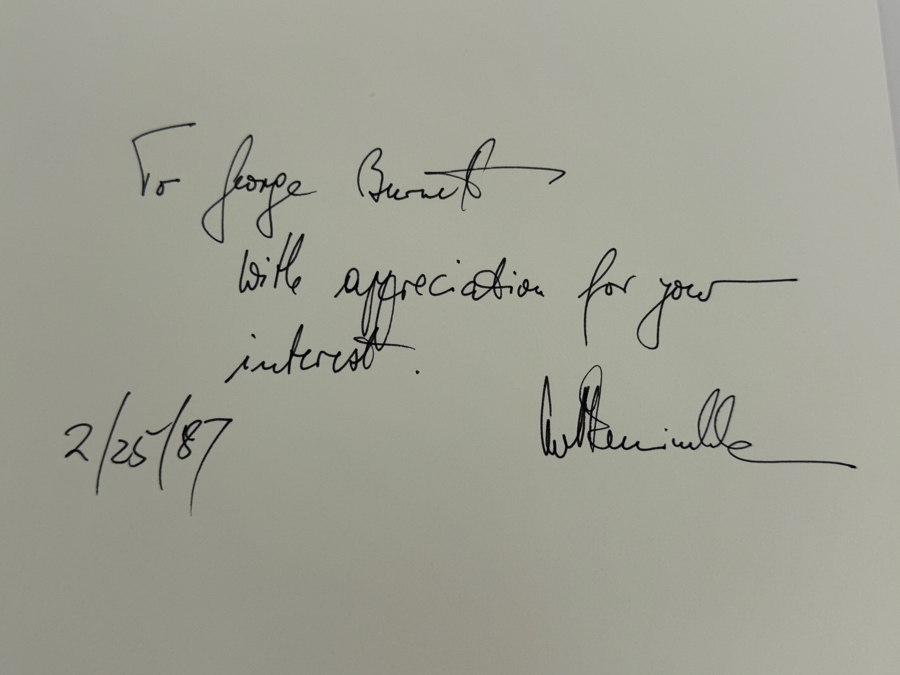 To George Burnett
With appreciation for your
interest.
2/25/87